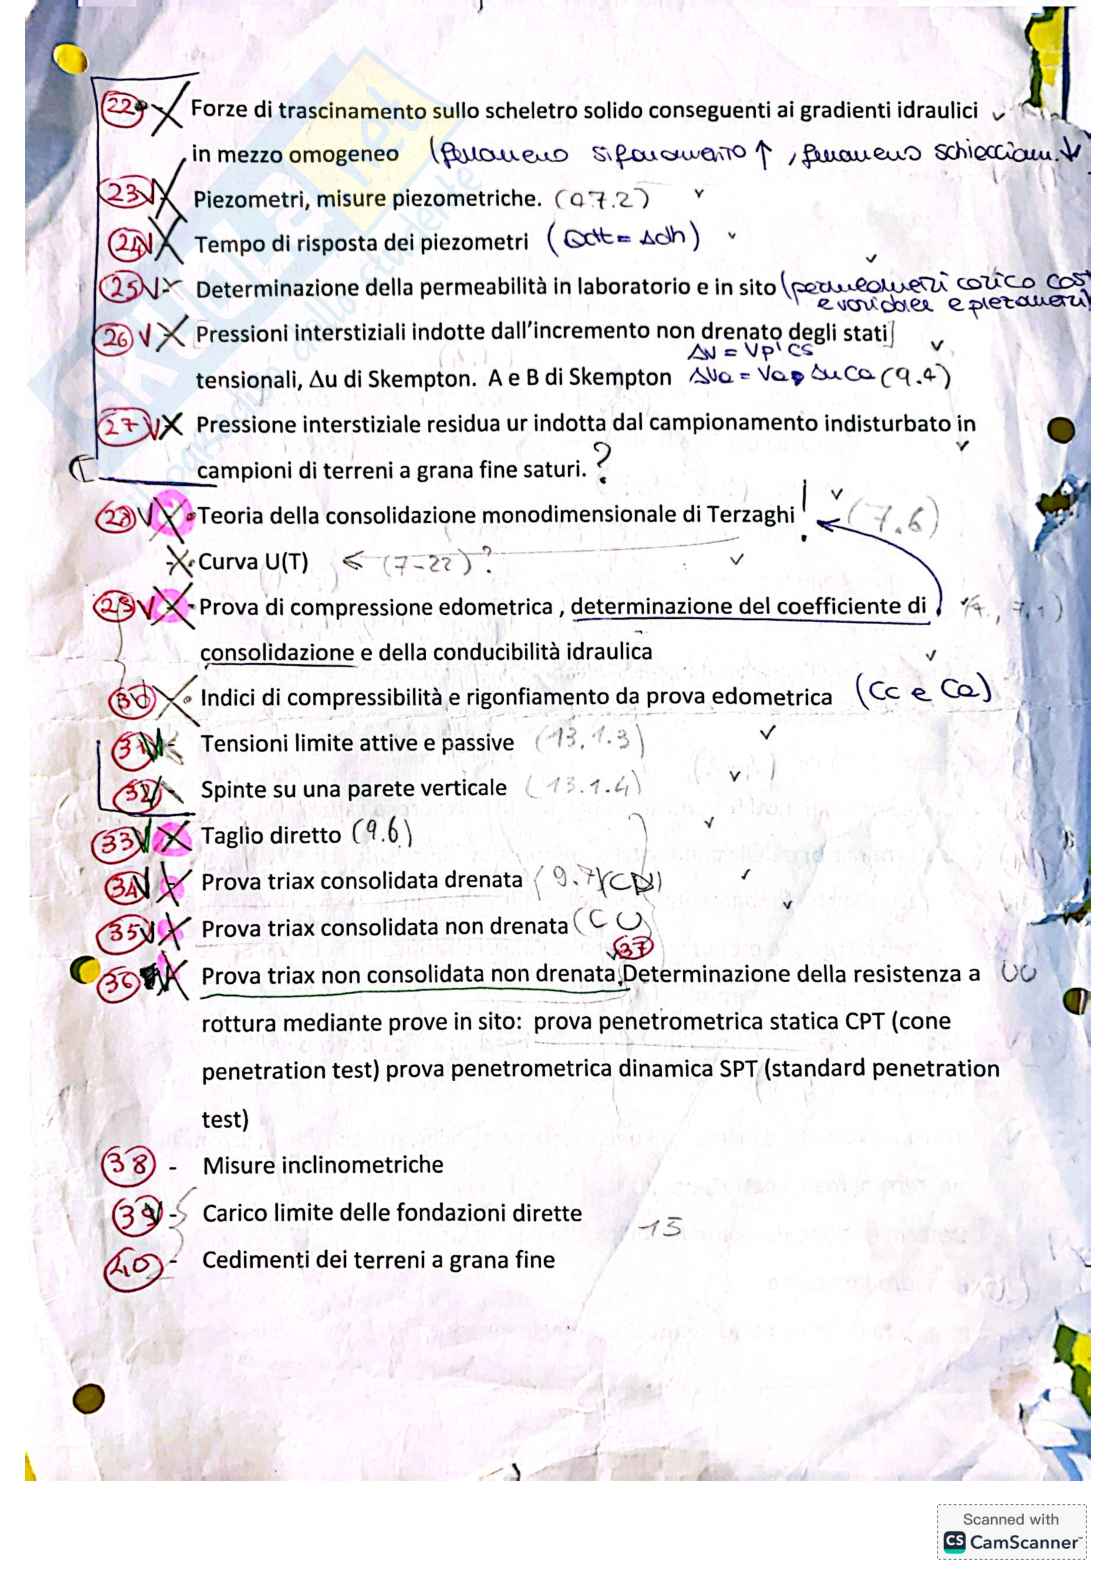 22 Forze di trascinamento sullo scheletro solido conseguenti ai gradienti idraulici
in mezzo omogeneo (fenomeno sifonamento ↑, fenomeno schiacciam. ↓
23 Piezometri, misure piezometriche. (9.7.2)
24 Tempo di risposta dei piezometri (Qdt = Adh)
25 Determinazione della permeabilità in laboratorio e in sito (permeametri carico cos
e variabile e piezometri)
26 Pressioni interstiziali indotte dall'incremento non drenato degli stati
tensionali, Δu di Skempton. A e B di Skempton (9.4)
27 Pressione interstiziale residua ur indotta dal campionamento indisturbato in
campioni di terreni a grana fine saturi. ?
28 Teoria della consolidazione monodimensionale di Terzaghi ! (7.6)
Curva U(T) ← (7-22) ?
29 - Prova di compressione edometrica , determinazione del coefficiente di
consolidazione e della conducibilità idraulica
30 - Indici di compressibilità e rigonfiamento da prova edometrica (Cc e Ca)
31 Tensioni limite attive e passive (13.1.3)
32 Spinte su una parete verticale (13.1.4)
33 Taglio diretto (9.6)
34 Prova triax consolidata drenata (9.7) (CD)
35 Prova triax consolidata non drenata (CU)
37
36 Prova triax non consolidata non drenata, Determinazione della resistenza a UU
rottura mediante prove in sito: prova penetrometrica statica CPT (cone
penetration test) prova penetrometrica dinamica SPT (standard penetration
test)
38 - Misure inclinometriche
39 - Carico limite delle fondazioni dirette
15
40 - Cedimenti dei terreni a grana fine
Scanned with
CS CamScanner